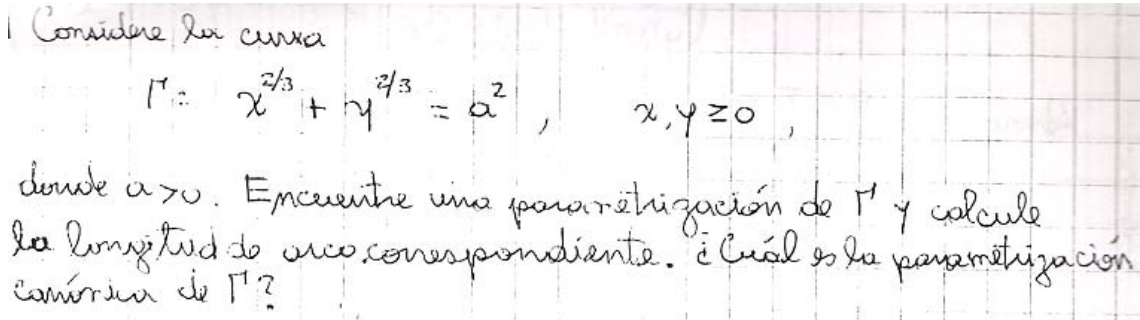 Considere la curva
Γ: x^{2/3} + y^{2/3} = a^2 , x, y ≥ 0 ,
donde a > 0. Encuentre una parametrización de Γ y calcule
la longitud de arco correspondiente. ¿Cuál es la parametrización
canónica de Γ?